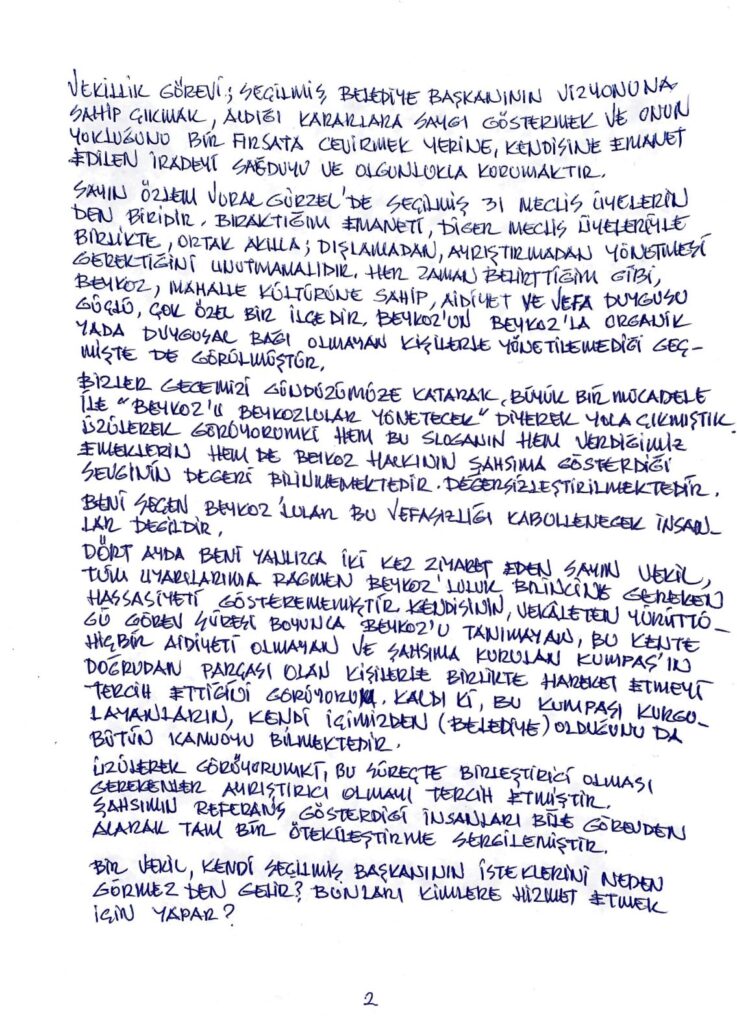 VEKİLLİK GÖREVİ; SEÇİLMİŞ BELEDİYE BAŞKANININ VİZYONUNA
SAHİP ÇIKMAK, ALDIĞI KARARLARA SAYGI GÖSTERMEK VE ONUN
YOKLUĞUNU BİR FIRSATA ÇEVİRMEK YERİNE, KENDİSİNE EMANET
EDİLEN İRADEYİ SAĞDUYU VE OLGUNLUKLA KORUMAKTIR.
SAYIN ÖZLEM VURAL GÜRZEL'DE SEÇİLMİŞ 31 MECLİS ÜYELERİN
DEN BİRİDİR. BIRAKTIĞIM EMANETİ, DİĞER MECLİS ÜYELERİYLE
BİRLİKTE, ORTAK AKILLA; DIŞLAMADAN, AYRIŞTIRMADAN YÖNETMESİ
GEREKTİĞİNİ UNUTMAMALIDIR. HER ZAMAN BELİRTTİĞİM GİBİ,
BEYKOZ, MAHALLE KÜLTÜRÜNE SAHİP, AİDİYET VE VEFA DUYGUSU
GÜÇLÜ, ÇOK ÖZEL BİR İLÇEDİR. BEYKOZ'UN BEYKOZ'LA ORGANİK
YADA DUYGUSAL BAĞI OLMAYAN KİŞİLERLE YÖNETİLEMEDİĞİ GEÇ-
MİŞTE DE GÖRÜLMÜŞTÜR.
BİZLER GECEMİZİ GÜNDÜZÜMÜZE KATARAK, BÜYÜK BİR MÜCADELE
İLE "BEYKOZ'U BEYKOZLULAR YÖNETECEK" DİYEREK YOLA ÇIKMIŞTIK.
ÜZÜLEREK GÖRÜYORUMKİ HEM BU SLOGANIN HEM VERDİĞİMİZ
EMEKLERİN HEM DE BEYKOZ HALKININ ŞAHSIMA GÖSTERDİĞİ
SEVGİNİN DEĞERİ BİLİNMEMEKTEDİR. DEĞERSİZLEŞTİRİLMEKTEDİR.
BENİ SEÇEN BEYKOZ'LULAR BU VEFASIZLIĞI KABULLENECEK İNSAN-
LAR DEĞİLDİR.
DÖRT AYDA BENİ YANLIZCA İKİ KEZ ZİYARET EDEN SAYIN VEKİL,
TÜM UYARILARIMA RAĞMEN BEYKOZ'LULUK BİLİNCİNE GEREKEN
HASSASİYETİ GÖSTEREMEMİŞTİR. KENDİSİNİN, VEKÂLETEN YÜRÜTTÜ-
ĞÜ GÖREV SÜRESİ BOYUNCA BEYKOZ'U TANIMAYAN, BU KENTE
HİÇBİR AİDİYETİ OLMAYAN VE ŞAHSIMA KURULAN KUMPAS'IN
DOĞRUDAN PARÇASI OLAN KİŞİLERLE BİRLİKTE HAREKET ETMEYİ
TERCİH ETTİĞİNİ GÖRÜYORUM. KALDI Kİ, BU KUMPASI KURGU-
LAYANLARIN, KENDİ İÇİMİZDEN (BELEDİYE) OLDUĞUNU DA
BÜTÜN KAMUOYU BİLMEKTEDİR.
ÜZÜLEREK GÖRÜYORUMKİ, BU SÜREÇTE BİRLEŞTİRİCİ OLMASI
GEREKENLER AYRIŞTIRICI OLMAYI TERCİH ETMİŞTİR.
ŞAHSIMIN REFERANS GÖSTERDİĞİ İNSANLARI BİLE GÖREVDEN
ALARAK TAM BİR ÖTEKİLEŞTİRME SERGİLEMİŞTİR.
BİR VEKİL, KENDİ SEÇİLMİŞ BAŞKANININ İSTEKLERİNİ NEDEN
GÖRMEZ DEN GELİR? BUNLARI KİMLERE HİZMET ETMEK
İÇİN YAPAR?
2